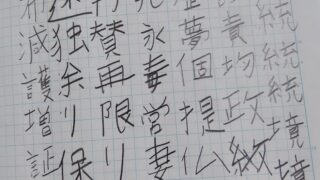 統統境境
責均政
夢個提仏
永毒営妻
賛再限り
独余り保
減護増証